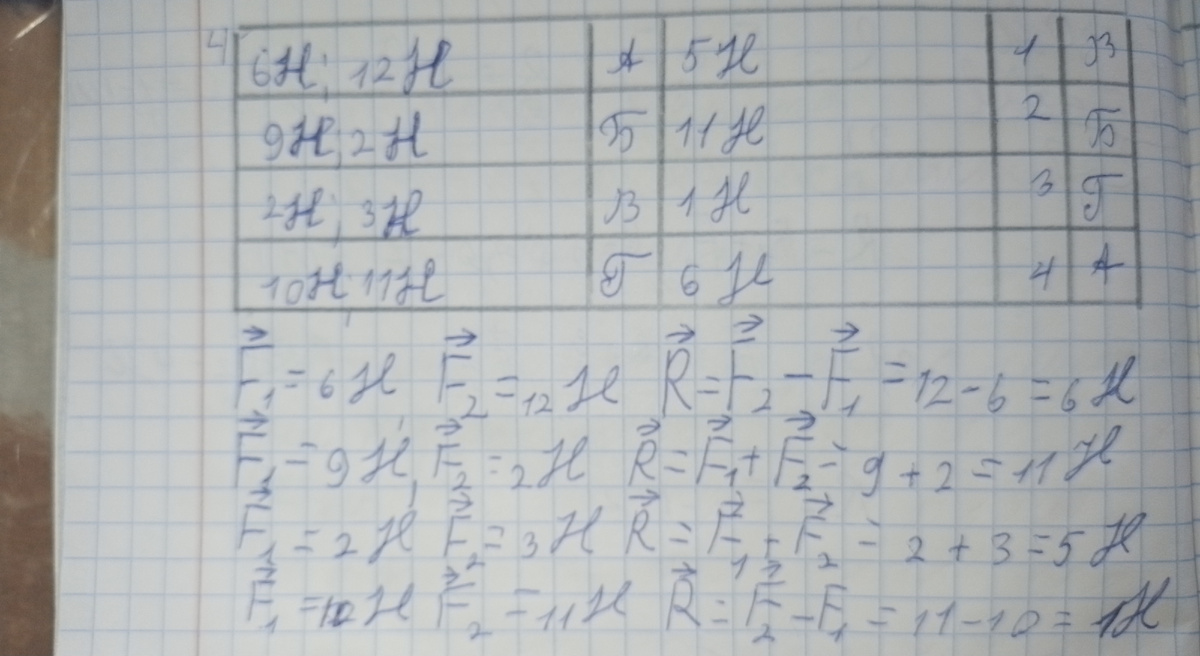 4
6Н; 12Н А 5Н 1 В
9Н; 2Н Б 11Н 2 Б
2Н; 3Н В 1Н 3 Г
10Н; 11Н Г 6Н 4 А
F₁ = 6Н F₂ = 12Н R = F₂ − F₁ = 12 − 6 = 6Н
F₁ = 9Н, F₂ = 2Н R = F₁ + F₂ = 9 + 2 = 11Н
F₁ = 2Н F₂ = 3Н R = F₁ + F₂ = 2 + 3 = 5Н
F₁ = 10Н F₂ = 11Н R = F₂ − F₁ = 11 − 10 = 1Н